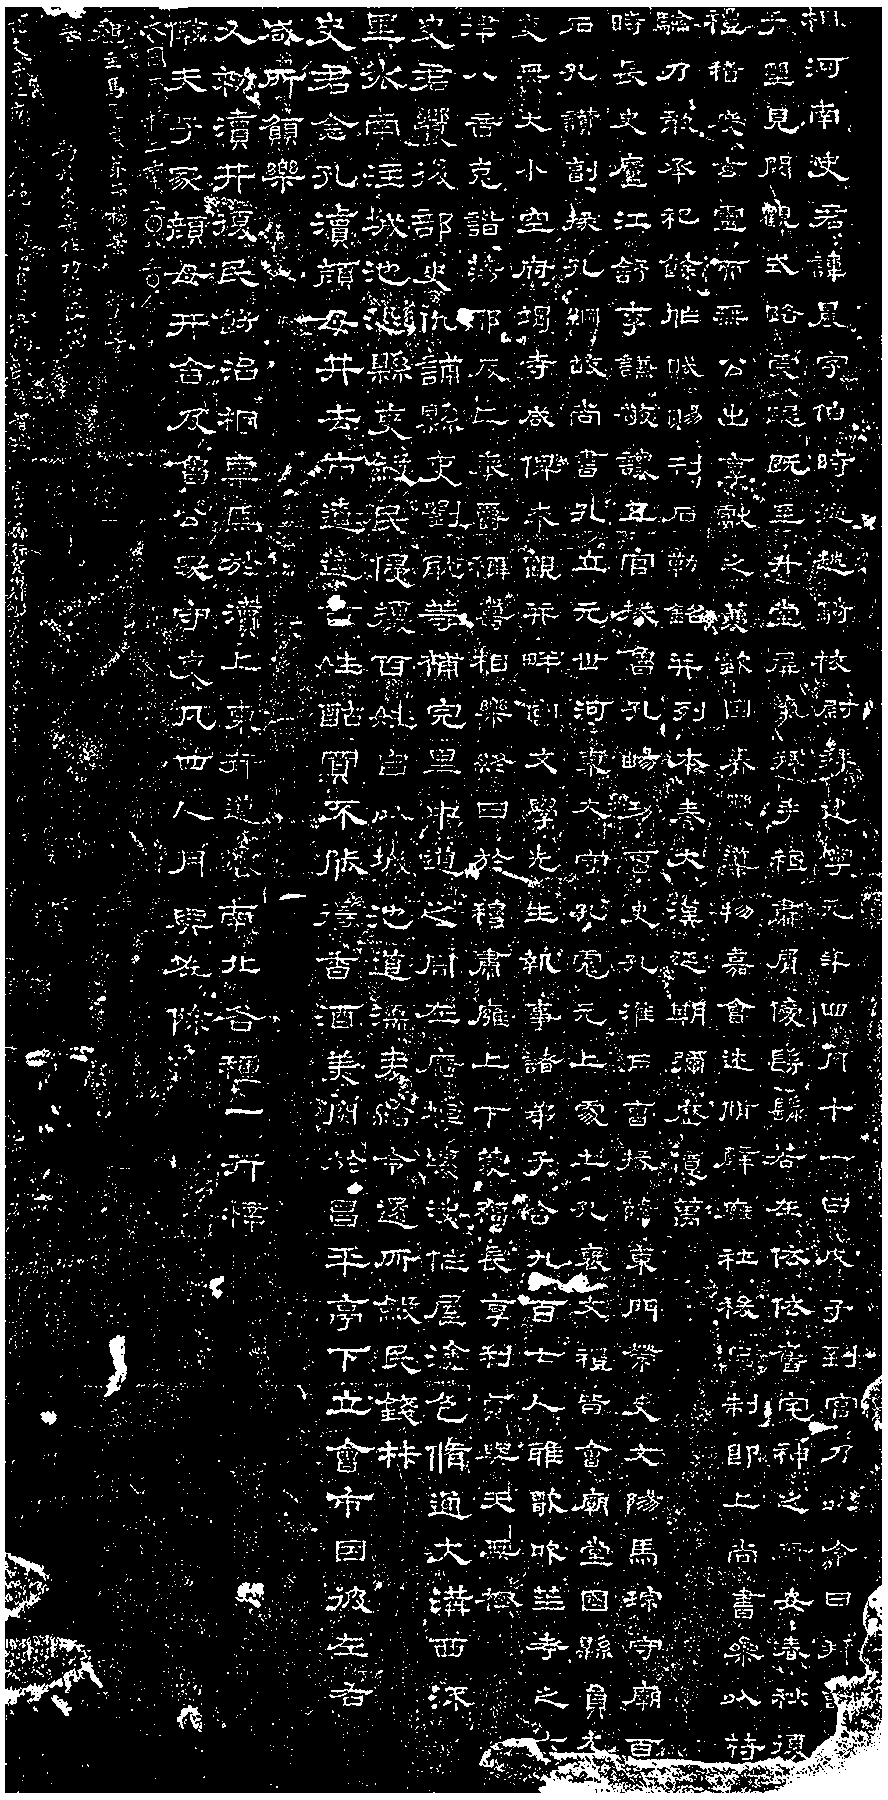 相河南史君諱晨字伯時從越騎校尉拜建寧元年四月十一日戊子到官乃以令日拜
子望見闕觀式路虔跽既至升堂屏氣拜手祗肅屑僾髣髴若在依依舊宅神之所安春秋復
禮稽度玄靈而無公出享獻之薦欽因春饗導物嘉會述脩辟雍社稷品制即上尚書參以符
驗乃敢承祀餘胙賦賜刊石勒銘并列本奏大漢延期彌歷億萬
時長史廬江舒李謙敬讓五官掾魯孔暢功曹史孔淮戶曹掾薛東門榮史文陽馬琮守廟百
石孔讚副掾孔綱故尚書孔立元世河東大守孔彪元上處士孔褒文禮皆會廟堂國縣員冗
吏無大小空府竭寺咸俾來觀并畔宮文學先生執事諸弟子合九百七人雅歌吹笙考之六
律八音克諧蕩邪反正奉爵稱壽相樂終日於穆肅雍上下蒙福長享利貞與天無極
史君饗後部史仇誧縣吏劉耽等補完里中道之周左廧垣壞決作屋塗色脩通大溝西流
里外南注城池恐縣吏斂民侵擾百姓自以城池道濡麥給令還所斂民錢材
史君念孔瀆顏母井去市遼遠百姓酤買不能得香酒美肉於昌平亭下立會市因彼左右
咸所願樂
又敕瀆井復民餝治桐車馬於瀆上東行道表南北各種一行梓
假夫子冢顏母井舍及魯公冢守吏凡四人月與佐除